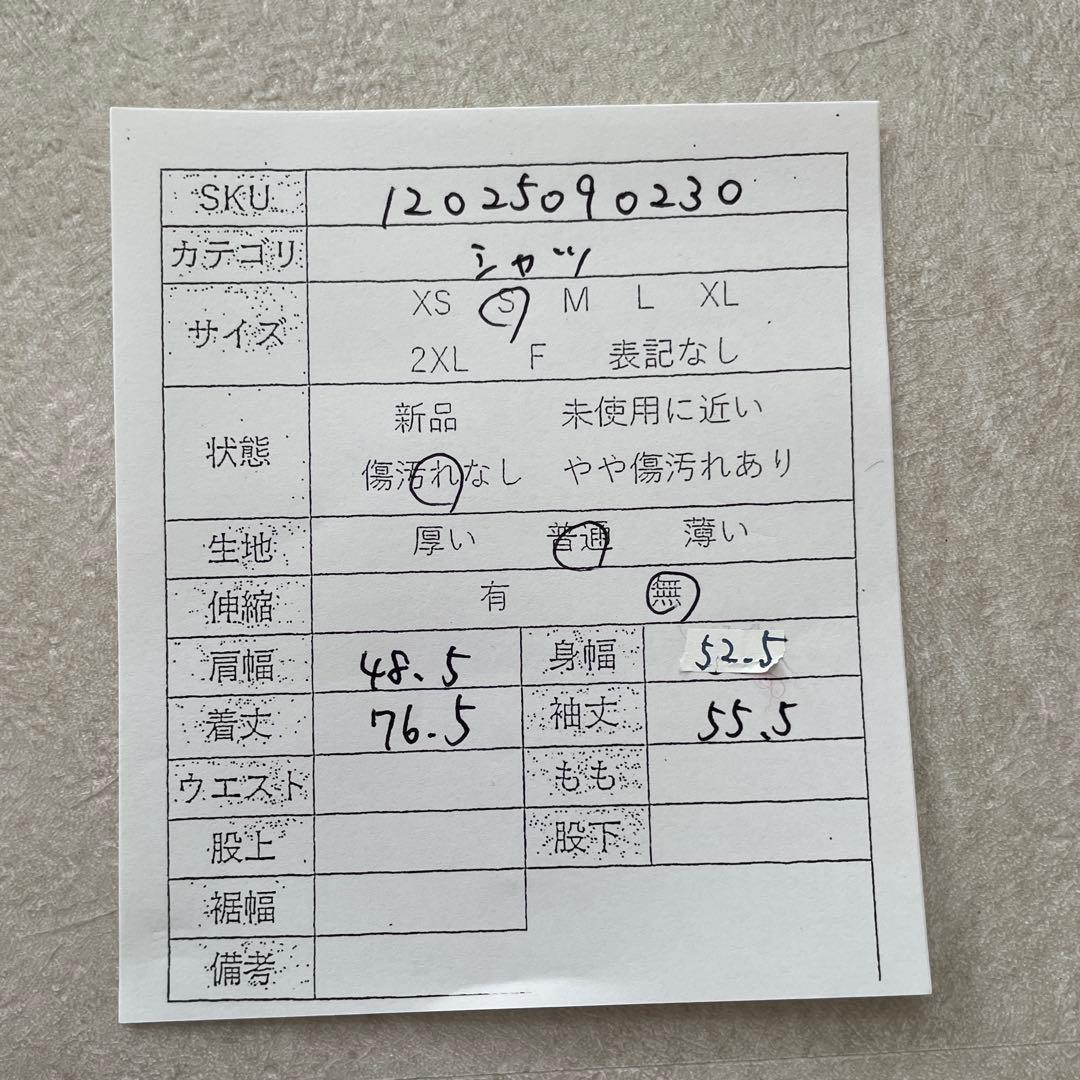 SKU 12025090230
カテゴリ シャツ
サイズ XS S M L XL
2XL F 表記なし
状態 新品 未使用に近い
傷汚れなし やや傷汚れあり
生地 厚い 普通 薄い
伸縮 有 無
肩幅 48.5 身幅 52.5
着丈 76.5 袖丈 55.5
ウエスト もも
股上 股下
裾幅
備考